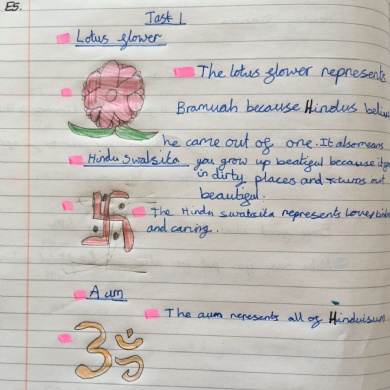 E5.
Task 1
Lotus flower
The lotus flower represents
Bramuah because Hindus believe
he came out of one. It also means
Hindu Swatsita you grow up beatiful because it
in dirty places and turns out
beautiful.
The Hindu swatsita represents Love
and caring.
Aum
The aum represents all of Hinduisum